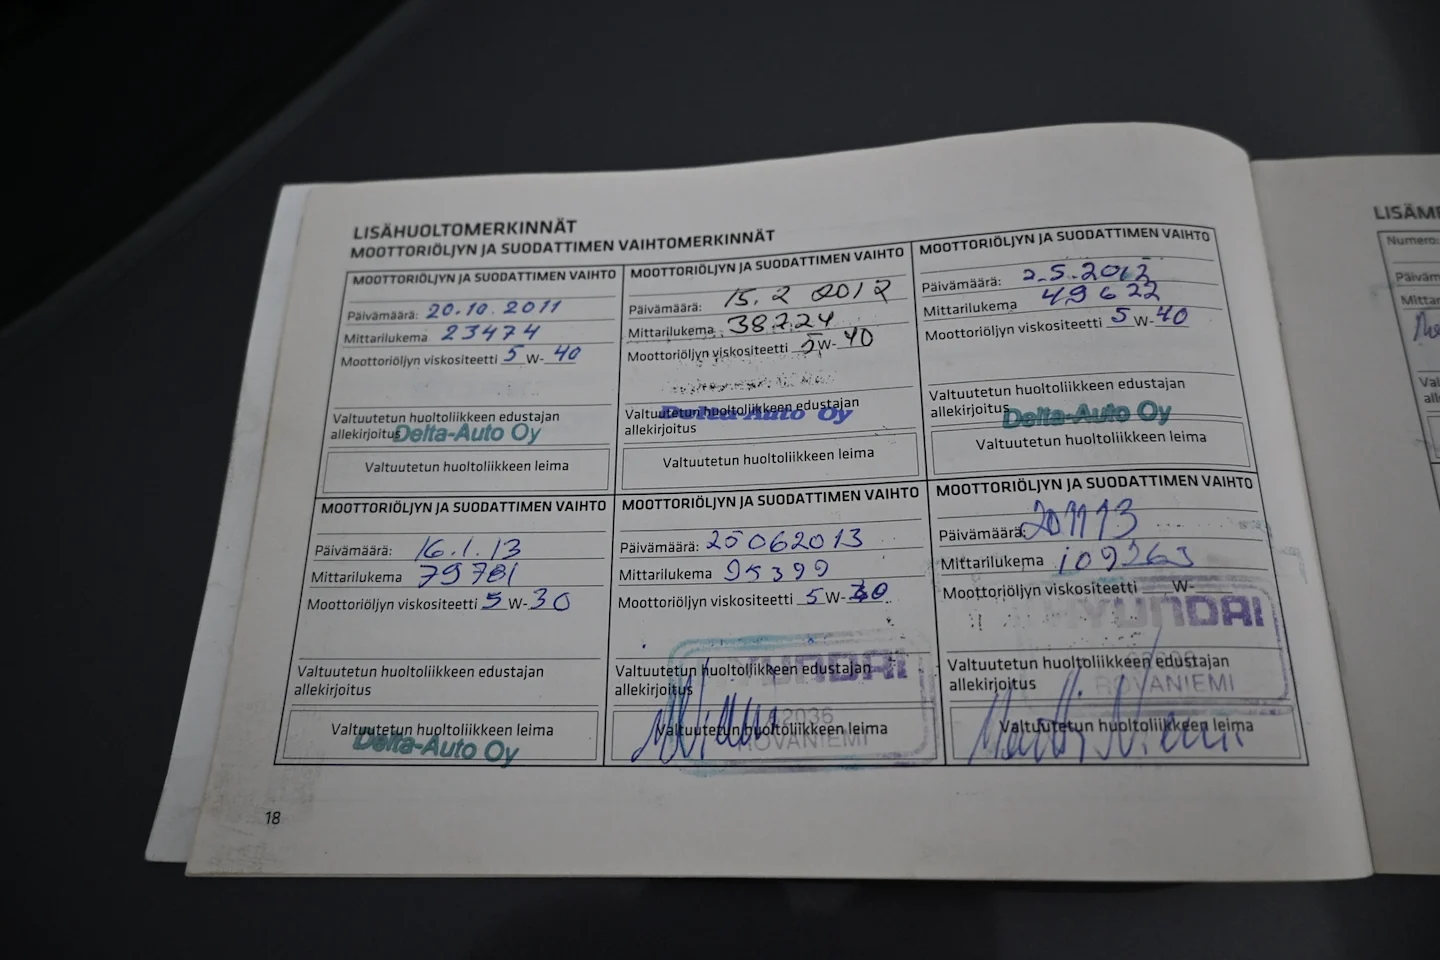 LISÄHUOLTOMERKINNÄT
MOOTTORIÖLJYN JA SUODATTIMEN VAIHTOMERKINNÄT
MOOTTORIÖLJYN JA SUODATTIMEN VAIHTO
Päivämäärä: 20.10.2011
Mittarilukema 23474
Moottoriöljyn viskositeetti 5 W- 40
Valtuutetun huoltoliikkeen edustajan
allekirjoitus Delta-Auto Oy
Valtuutetun huoltoliikkeen leima
MOOTTORIÖLJYN JA SUODATTIMEN VAIHTO
Päivämäärä: 15.2 2012
Mittarilukema 38724
Moottoriöljyn viskositeetti 5 W- 40
Valtuutetun huoltoliikkeen edustajan
Delta-Auto Oy
allekirjoitus
Valtuutetun huoltoliikkeen leima
MOOTTORIÖLJYN JA SUODATTIMEN VAIHTO
Päivämäärä: 2.5.2012
Mittarilukema 49622
Moottoriöljyn viskositeetti 5 W- 40
Valtuutetun huoltoliikkeen edustajan
allekirjoitus Delta-Auto Oy
Valtuutetun huoltoliikkeen leima
MOOTTORIÖLJYN JA SUODATTIMEN VAIHTO
Päivämäärä: 16.1.13
Mittarilukema 79781
Moottoriöljyn viskositeetti 5 W- 30
Valtuutetun huoltoliikkeen edustajan
allekirjoitus
Valtuutetun huoltoliikkeen leima
Delta-Auto Oy
MOOTTORIÖLJYN JA SUODATTIMEN VAIHTO
Päivämäärä: 25062013
Mittarilukema 95399
Moottoriöljyn viskositeetti 5 W- 30
Valtuutetun huoltoliikkeen edustajan
HYUNDAI
allekirjoitus
Valtuutetun huoltoliikkeen leima
ROVANIEMI
MOOTTORIÖLJYN JA SUODATTIMEN VAIHTO
Päivämäärä: 201113
Mittarilukema 109263
Moottoriöljyn viskositeetti W-
HYUNDAI
Valtuutetun huoltoliikkeen edustajan
allekirjoitus
ROVANIEMI
Valtuutetun huoltoliikkeen leima
18
LISÄM
Numero: